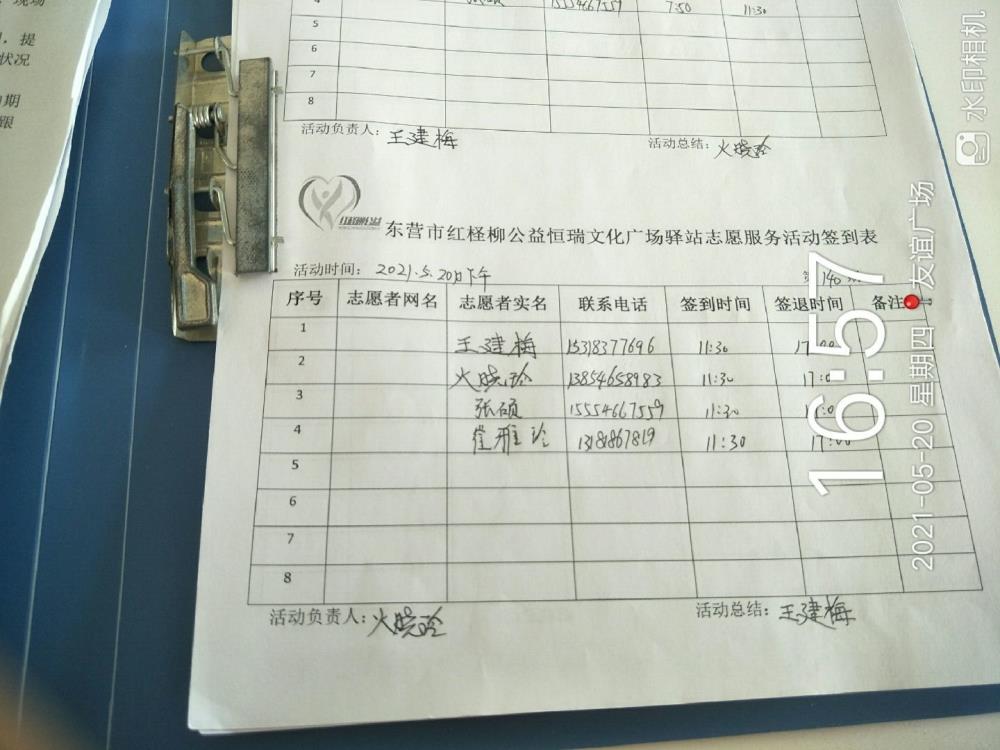 现场
，提
状况
期
跟
4 15554667559 7:50 11:30
5
6
7
8
活动负责人：王建梅 活动总结：火晓玲
东营市红柽柳公益恒瑞文化广场驿站志愿服务活动签到表
活动时间：2021.5.20日下午 第140
序号 志愿者网名 志愿者实名 联系电话 签到时间 签退时间 备注
1 王建梅 15318377696 11:30
2 火晓玲 13854658983 11:30 17:0
3 张硕 15554667559 11:30
4 崔雅玲 13181867819 11:30 17:00
5
6
7
8
活动负责人：火晓玲 活动总结：王建梅
16:57
2021-05-20 星期四 友谊广场
水印相机